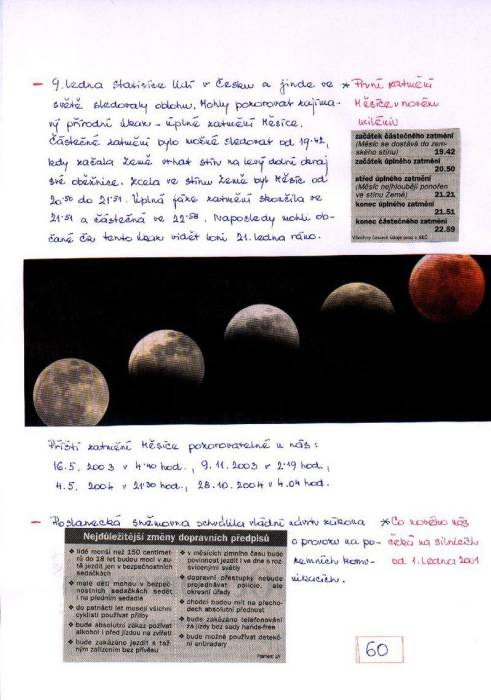 – 9. ledna statisíce lidí v Česku a jinde ve
světě sledovaly oblohu. Mohly pozorovat zajíma-
vý přírodní úkaz – úplné zatmění Měsíce.
Částečné zatmění bylo možné sledovat od 19.42,
kdy začala Země vrhat stín na levý dolní okraj
své oběžnice. Zcela ve stínu Země byl Měsíc od
20:50 do 21:51. Úplná fáze zatmění skončila ve
21:51 a částečná ve 22:58. Naposledy mohli ob-
čané ČR tento úkaz vidět loni 21. ledna ráno.
* První zatmění
Měsíce v novém
miléniu
začátek částečného zatmění
(Měsíc se dostává do zem-
ského stínu) 19.42
začátek úplného zatmění
20.50
střed úplného zatmění
(Měsíc nejhlouběji ponořen
ve stínu Země) 21.21
konec úplného zatmění
21.51
konec částečného zatmění
22.59
Všechny časové údaje jsou v SEČ
Příští zatmění Měsíce pozorovatelné u nás:
16.5. 2003 v 4:40 hod., 9.11.2003 v 2:19 hod.,
4.5. 2004 v 21:30 hod., 28.10.2004 v 4.04 hod.
– Poslanecká sněmovna schválila vládní návrh zákona
o provozu na po-
zemních komu-
nikacích.
* Co nového nás
čeká na silnicích
od 1. ledna 2001
Nejdůležitější změny dopravních předpisů
❖ lidé menší než 150 centimet-
rů do 18 let budou moci v au-
tě jezdit jen v bezpečnostních
sedačkách
❖ malé děti mohou v bezpeč-
nostních sedačkách sedět
i na předním sedadle
❖ do patnácti let musejí všichni
cyklisti používat přilby
❖ bude absolutní zákaz požívat
alkohol i před jízdou na zvířeti
❖ bude zakázáno jezdit s taž-
ným zařízením bez přívěsu
❖ v měsících zimního času bude
povinnost jezdit i ve dne s roz-
svícenými světly
❖ dopravní přestupky nebude
projednávat policie, ale
okresní úřady
❖ chodci budou mít na přecho-
dech absolutní přednost
❖ bude zakázáno telefonování
za jízdy bez sady hands-free
❖ bude možné používat detekč-
ní antiradary
60